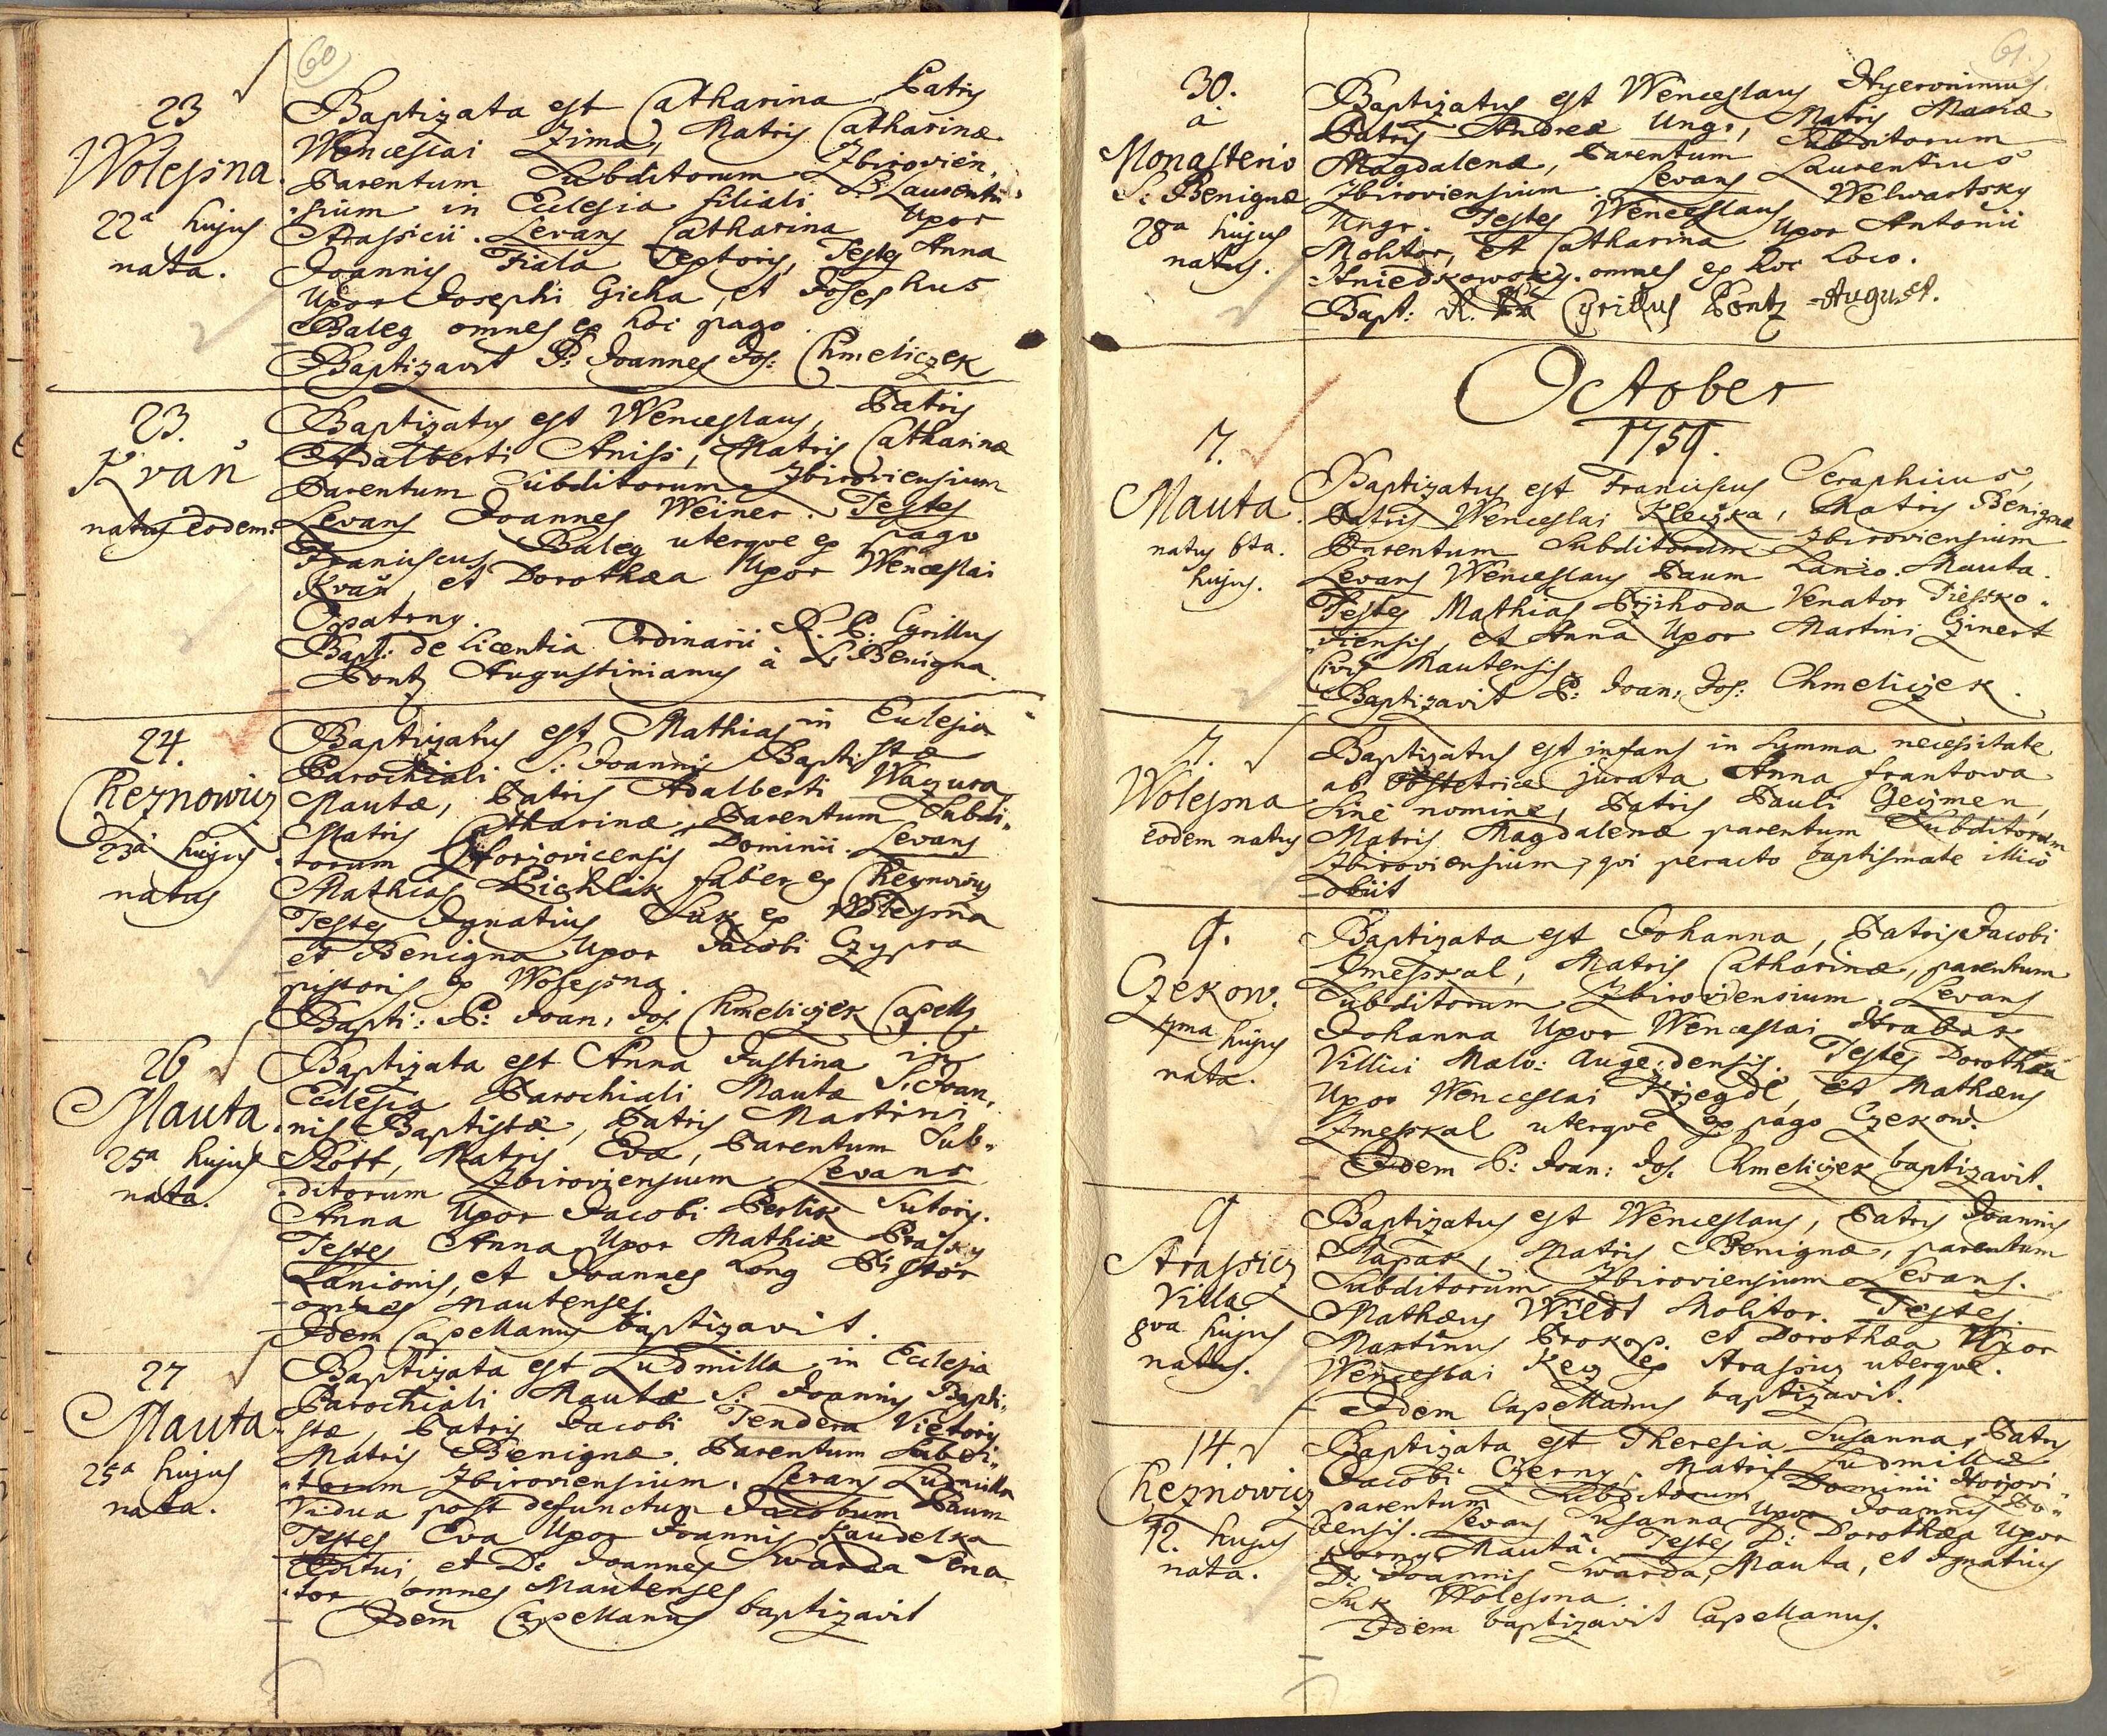 60
23
Wolessna
22a hujus
nata.
Baptizata est Catharina, Patris
Wenceslai Zima, Matris Catharinæ
Parentum Subditorum Zbirovien„
„sium in Eclesia filiali S: Laurentii
Strassicii. Levans Catharina Uxor
Joannis Fiala Textoris, Testes Anna
Uxor Josephi Gicha, et Josephus
Baleg omnes ex hoc pago.
Baptizavit P: Joannes Jos: Chmeliczek
23.
Kvaň
natus eodem.
Baptizatus est Wenceslaus, Patris
Adalberti Aniss, Matris Catharinæ
Parentum Subditorum Zbiroviensium
Levans Joannes Weiner. Testes
Franciscus Baleg uterque ex pago
Kvaň, et Dorothæa Uxor Wenceslai
Opatrny.
Bapt: de licentia Ordinarii R. P: Cyrillus
Pontz Augustinianus à S: Benigna.
24.
Cheznowicz
23a hujus
natus
Baptizatus est Mathias in Eclesia
Parochiali S: Joannis Baptistæ
Mautæ, Patris Adalberti Wazura
Matris Catharinæ, Parentum Subdi„
„torum Horzovicensis Dominii. Levans
Mathias Pichlik faber ex Cheznowicz
Testes Ignatius Suk ex Wolessna
et Benigna Uxor Jacobi Czypra
pistoris ex Wolessna.
Bapti: P: Joan: Jos: Chmeliczek Capell:
26
Mauta
25a hujus
nata.
Baptizata est Anna Justina in
Eclesia Parochiali Mautæ S: Joan„
„nis Baptistæ, Patris Martini
Rott, Matris Evæ, Parentum Sub„
„ditorum Zbiroviensium Levans
Anna Uxor Jacobi Perlik Sutoris.
Testes Anna Uxor Mathiæ Prasky
Lanionis, et Joannes Long Pistor
omnes Mautenses.
Idem Capellanus baptizavit.
27
Mauta
25a hujus
nata.
Baptizata est Ludmilla in Eclesia
Parochiali Mautæ S: Joannis Bapti„
stæ, Patris Jacobi Tendera Vietoris
Matris Benignæ. Parentum Subdi„
„torum Zbiroviensium. Levans Ludmilla
Vidua post defunctum Jacobum Paum
Testes Eva Uxor Joannis Kaudelka
Æditui, et D: Joannes Swarda Sena
„tor omnes Mautenses
Idem Capellanus baptizavit
61.
30.
à
Monasterio
S: Benignæ
28a hujus
natus.
Baptizatus est Wenceslaus Hyeronimus
Patris Andreæ Ungr, Matris Mariæ
Magdalenæ, Parentum Subditorum
Zbiroviensium. Levans Laurentius
Ungr. Testes Wenceslaus Welwartsky
Molitor, et Catharina Uxor Antonii
Hniedkowsky. omnes ex hoc loco.
Bapt: R. P. Cyrillus Pontz August.
October
1759.
7.
Mauta
natus 6ta.
hujus.
Baptizatus est Franciscus Seraphicus,
Patris Wenceslai Kleczka, Matris Benignæ
Parentum Subditorum Zbiroviensium
Levans Wenceslaus Paum Lanio. Mauta.
Testes Mathias Przihoda Venator Tiessko„
„viensis, et Anna Uxor Martini Ginert
Civis Mautensis
Baptizavit P: Joan: Jos: Chmeliczek.
7.
Wolessna
eodem natus
Baptizatus est infans in summa necessitate
ab obstetrice jurata Anna Frantowa
Sine nomine, Patris Pauli Geczmen,
Matris Magdalenæ parentum Subditorum
Zbiroviensium, qui peracto baptismate illico
obiit
9.
Czekow.
7ma hujus
nata.
Baptizata est Johanna, Patris Jacobi
Zmesskal, Matris Catharinæ, parentum
Subditorum Zbiroviensium. Levans
Johanna Uxor Wenceslai Hrabak
Villici Malo: Augezdensis. Testes Dorothæa
Uxor Wenceslai Krzegdl, et Mathæus
Zmesskal uterque ex pago Czekow.
Idem P: Joan: Jos: Chmeliczek baptizavit.
9
Strassicz
Villa
8va hujus
natus.
Baptizatus est Wenceslaus, Patris Joannis
Slapak, Matris Benignæ, parentum
Subditorum Zbiroviensium Levans.
Mathæus Wildt Molitor. Testes.
Martinus Prokop. et Dorothæa Uxor
Wenceslai Kecz ex Strassicz uterque.
Idem Capellanus baptizavit.
14.
Cheznowicz
12. hujus
nata.
Baptizata est Theresia Susanna, Patris
Jacobi Czerny, Matris Ludmillæ
parentum Subditorum Dominii Horzovi„
censis. Levans Susanna Uxor Joannis
Mauta: Testes D: Dorothæa Uxor
D: Joannis Swarda, Mauta, et Ignatius
Suk Wolessna.
Idem baptizavit Capellanus.